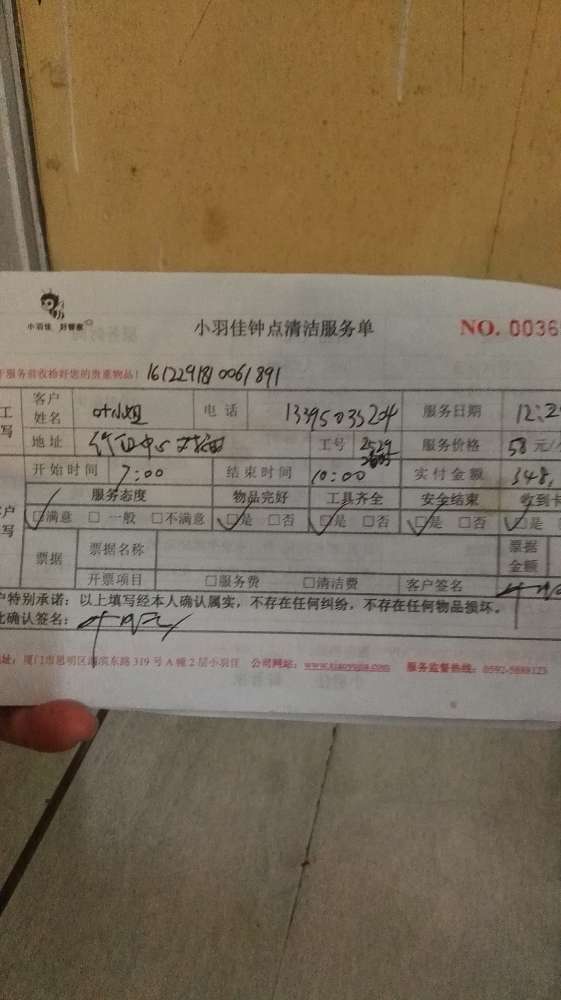 小羽佳 好管家
小羽佳钟点清洁服务单 NO. 0036
服务前收拾好您的贵重物品! 161229181006 1891
工 客户姓名 叶小姐 电话 13395035204 服务日期 12:2
写 地址 工号 2529 服务价格 58元/
开始时间 7:00 结束时间 10:00 实付金额 348
服务态度 物品完好 工具齐全 安全结束 收到卡
写 ☑满意 □一般 □不满意 ☑是 □否 ☑是 □否 ☑是 □否 ☑是
票据 票据名称 票据金额
开票项目 □服务费 □清洁费 客户签名
户特别承诺:以上填写经本人确认属实,不存在任何纠纷,不存在任何物品损坏。
此确认签名:
址:厦门市思明区湖滨东路 319 号 A 幢 2 层小羽佳 公司网站:www.xiaoyujia.com 服务监督热线:0592-5688123